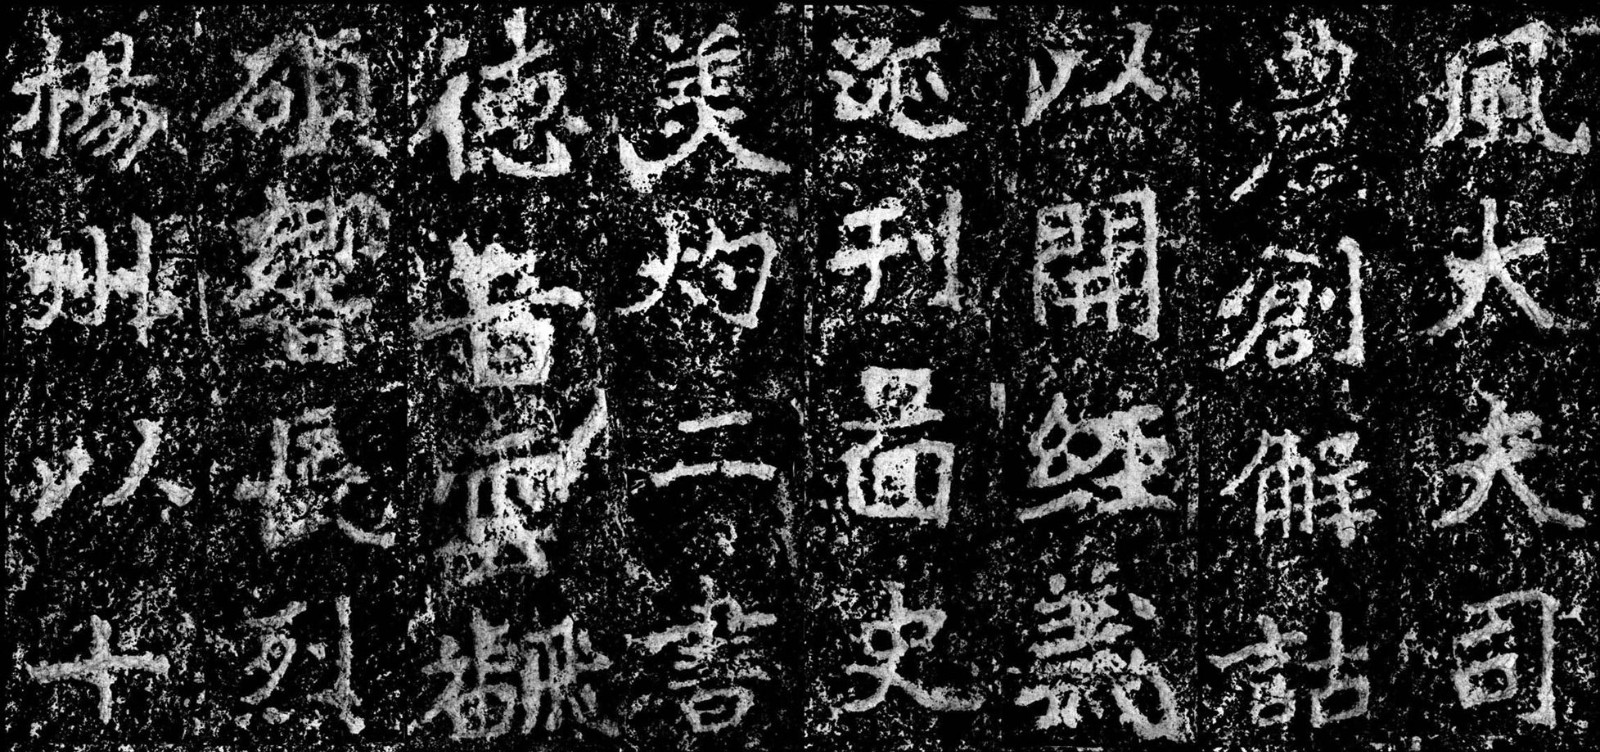 風大夫司
農創解詁
以開經義
迹刊圖史
美灼二書
德音雲翻
碩響長烈
楊州以十